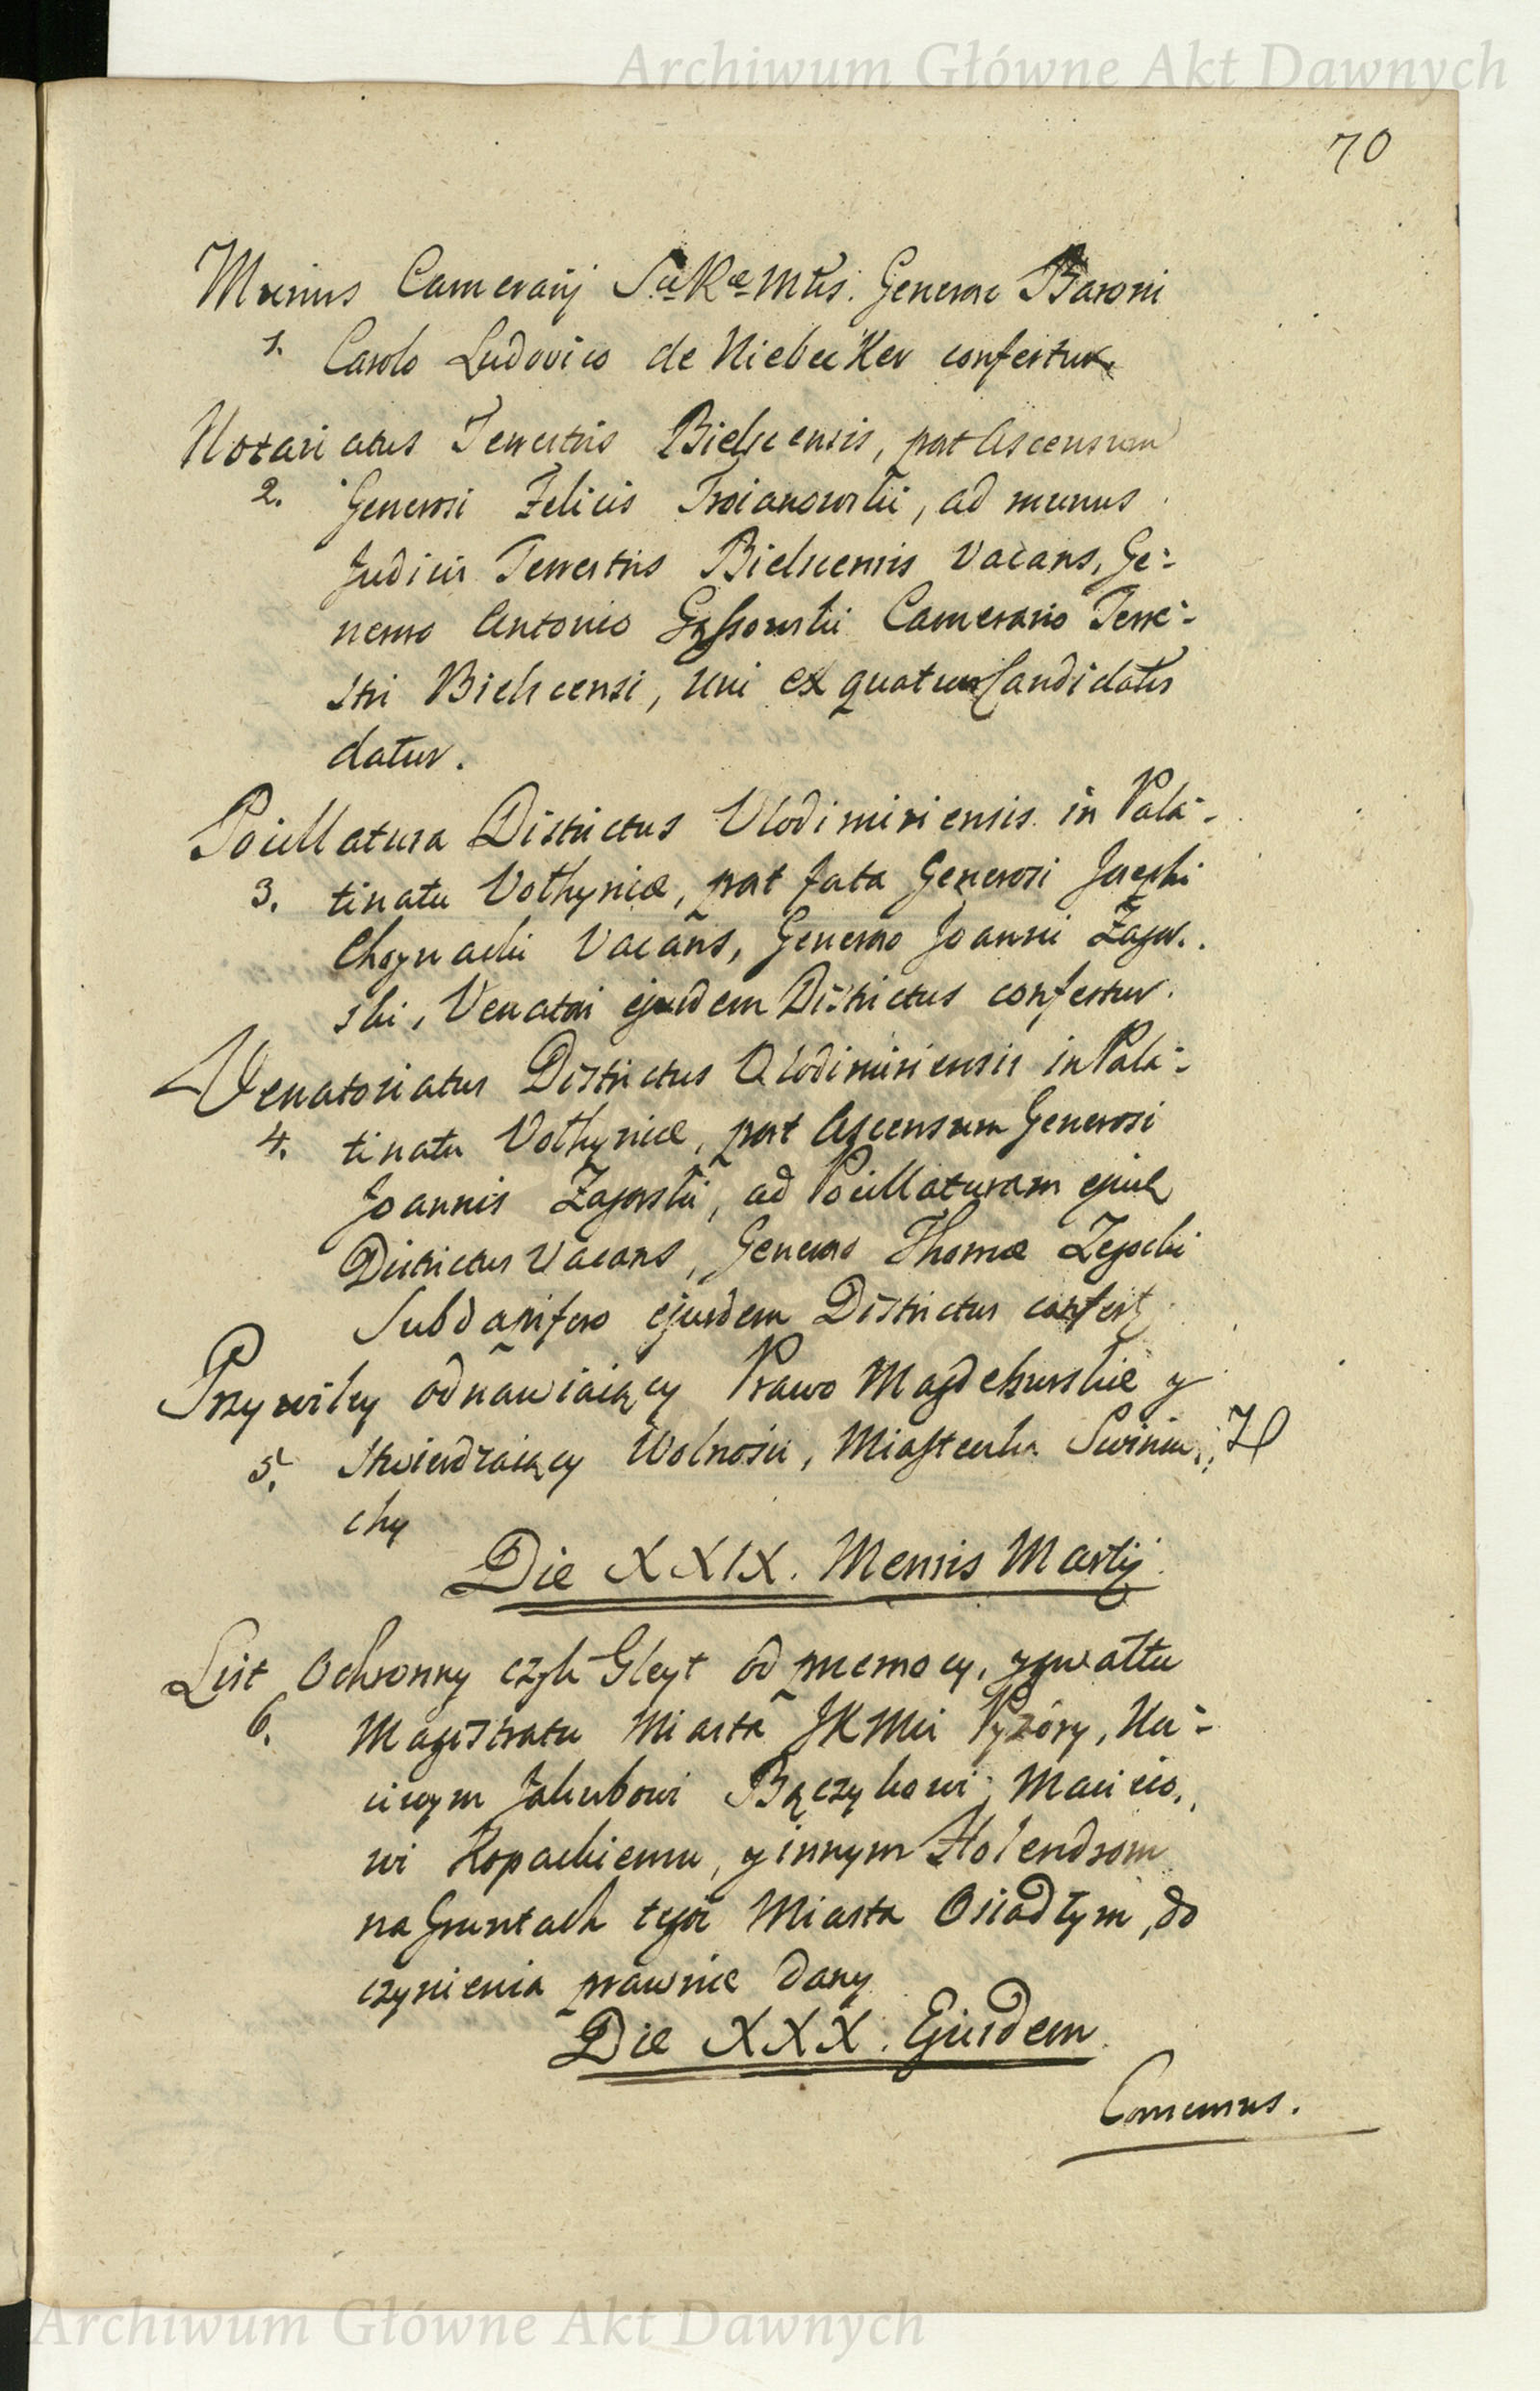 Archiwum Główne Akt Dawnych
70
Munus Camerarij Sæ Ræ Mtis. Generoso Baroni
1. Carolo Ludovico de Niebecker confertur.
Notariatus Terrestris Bielscensis, post Ascensum
2. Generosi Felicis Troianowski, ad munus
Judicis Terrestris Bielscensis vacans, Ge-
neroso Antonio Gąssowski Camerario Terre-
stri Bielscensi, uni ex quatuor Candidatis
datur.
Pocillatura Districtus Vlodimiriensis in Pala-
3. tinatu Volhyniæ, post fata Generosi Josephi
Choynacki Vacans, Generoso Joanni Zagor-
ski, Venatori ejusdem Districtus confertur.
Venatoriatus Districtus Vlodimiriensis in Pala-
4. tinatu Volhyniæ, post Ascensum Generosi
Joannis Zagorski, ad Pocillaturam ejusd
Districtus Vacans, Generoso Thomæ Zepocki
Subdapifero ejusdem Districtus confert
Przywiley odnawiaiący Prawo Magdeburskie y
5. stwierdzaiący Wolności, Miasteczku Swiniu-
chy
Die XXIX. Mensis Martij.
List Ochronny czyli Gleyt od przemocy, y gwałtu
6. Magistratu Miasta JKMci Pyzdry, Uc-
ciwym Jakubowi Bączykowi, Macieio-
wi Kopackiemu, y innym Holendrom
na Gruntach tegoż Miasta Osiadłym, do
czynienia prawnie dany
Die XXX. Ejusdem
Comemus.
Archiwum Główne Akt Dawnych